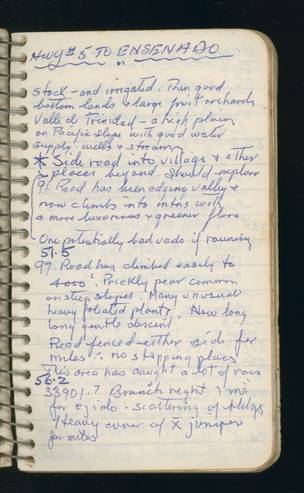 Hwy #5 TO ENSENADO
"
stock - and irrigated. Then good
bottom lands & large fruit orchards
Valle de Trinidad - a high plain
on Pacific slope with good water
supply - wells & streams.
* Side road into village & other
places beyond. Should explore
91. Road has been edging valley &
now climbs into mtns with
a more luxurious & greener flora
One potentially bad vado if running
51.5
99. Road has climbed easily to
4000'. Prickly pear common
on steep slopes. Many unusual
heavy foliated plants. Now long
long gentle descent
Road fenced either side for
miles - no stopping places
This area has caught a lot of rain
56.2
33901.7 Branch right 1 mi
for ejido - scattering of bldgs
Heavy cover of X juniper
for miles